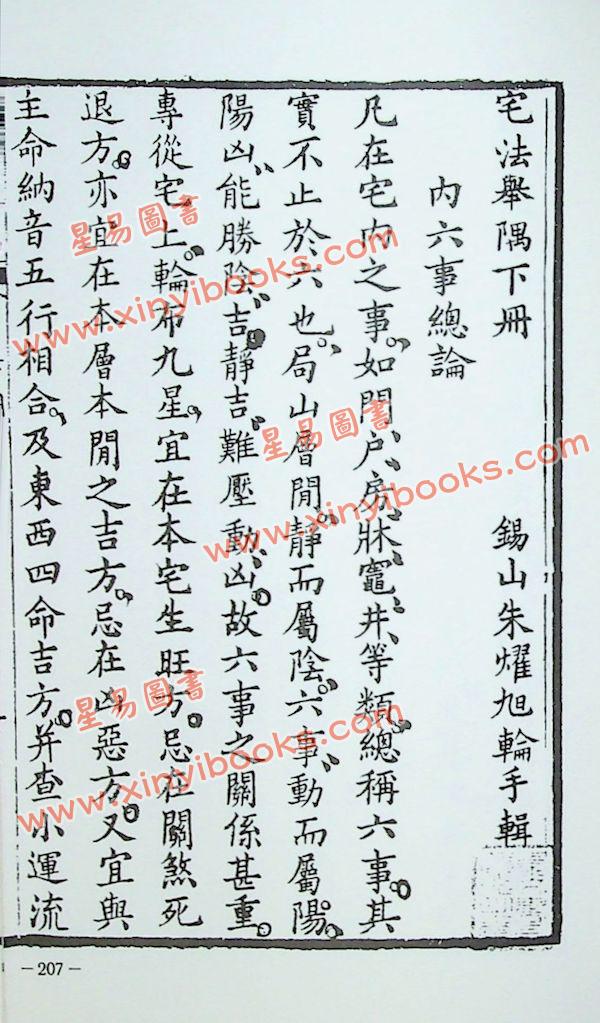 宅法舉隅下冊　錫山朱燿旭輪手輯
內六事總論
凡在宅內之事如門户房牀竈井等類總稱六事其
實不止於六也局山層間靜而屬陰六事動而屬陽
陽凶能勝陰吉靜吉難壓動凶故六事之關係甚重
專從宅上輪布九星宜在本宅生旺方忌在關煞死
退方亦宜在本層本間之吉方忌在凶惡方又宜與
主命納音五行相合及東西四命吉方并查小運流
星易圖書
www.xinyibooks.com
星易圖書
www.xinyibooks.com
星易圖書
www.xinyibooks.com
－207－